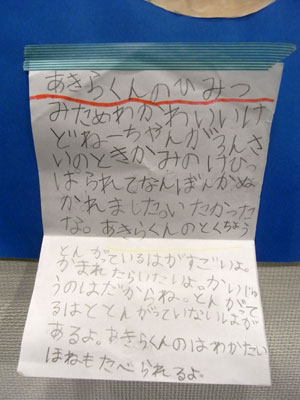 あきらくんのひみつ
みためわかわいいけ
どねーちゃんがろんさ
いのときかみのけひっ
はられてなんぼんかぬ
かれました。いたかった
な。あきらくんのとくちょう
とんがているはがすごいよ。
かまれたらいたいよ。かいじゅ
うのはだからね。とんがって
るはととんがっていないはが
あるよ。あきらくんのはわかたい
ほねもたべられるよ。